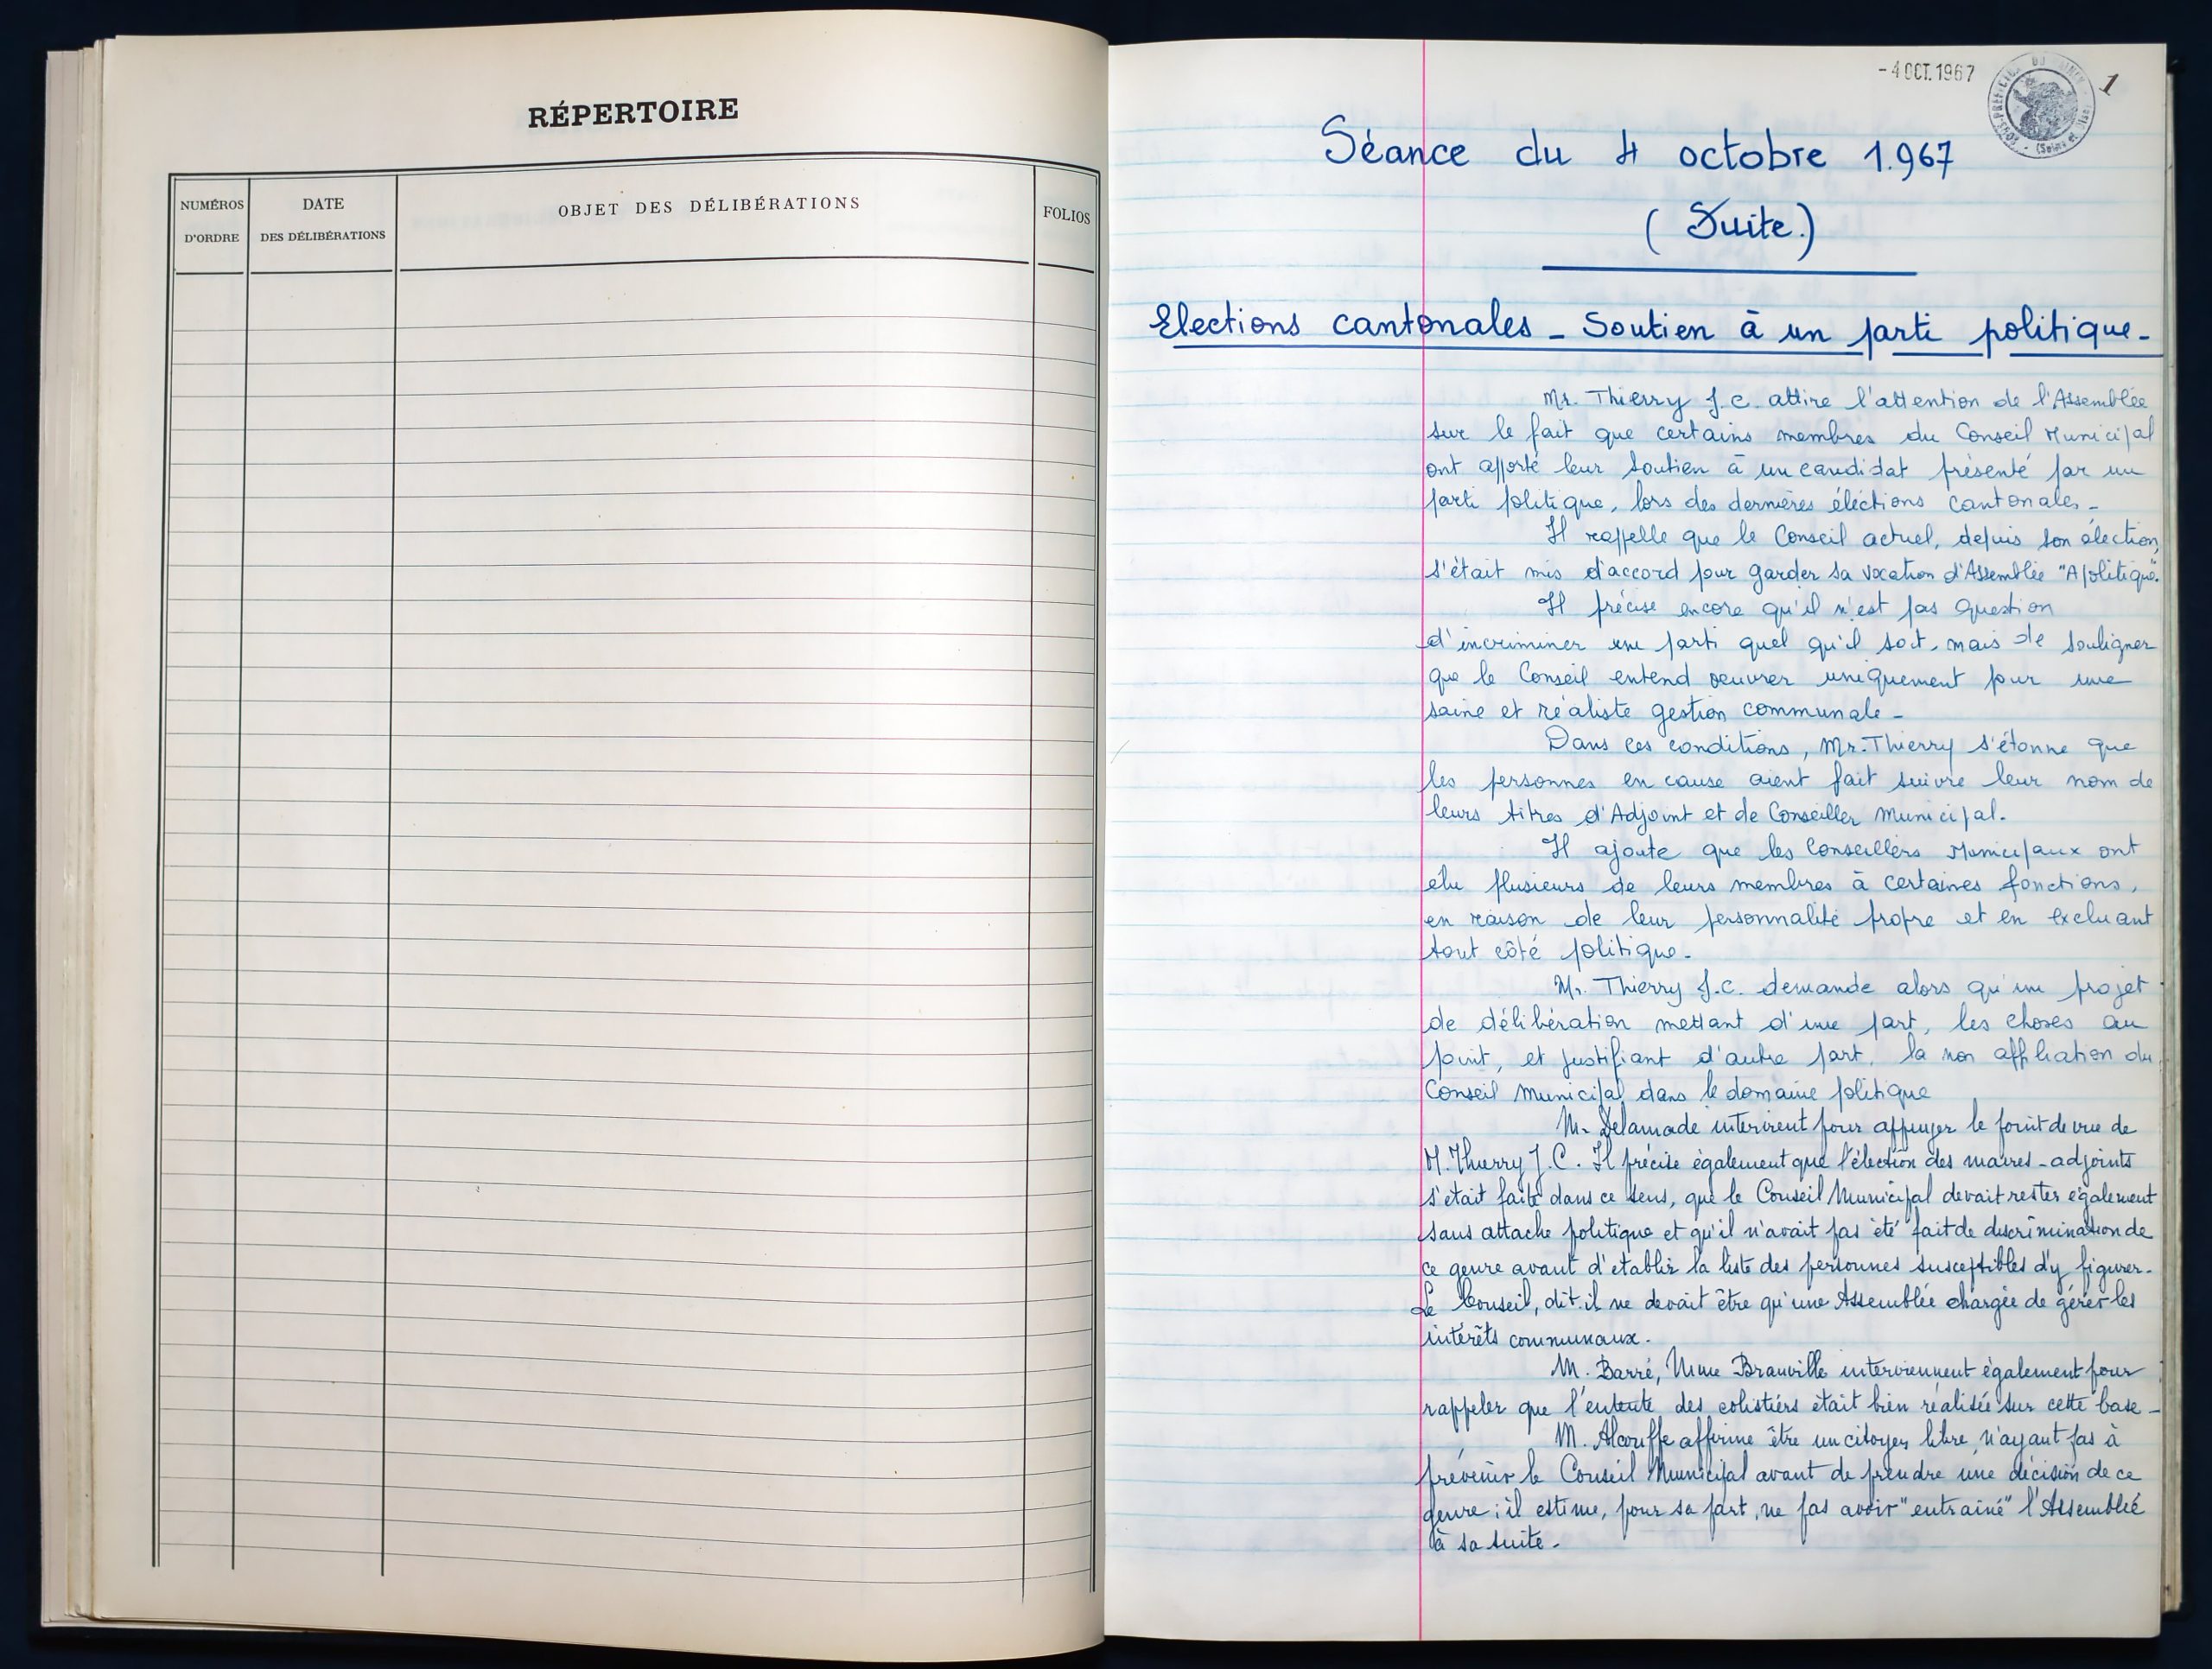 RÉPERTOIRE
NUMÉROS
D'ORDRE
DATE
DES DÉLIBÉRATIONS
OBJET DES DÉLIBÉRATIONS
FOLIOS
- 4 OCT. 1967
1
Séance du 4 octobre 1.967
(Suite.)
Elections cantonales - Soutien à un parti politique -
Mr. Thierry J.C. attire l'attention de l'Assemblée
sur le fait que certains membres du Conseil Municipal
ont apporté leur soutien à un candidat présenté par un
parti politique, lors des dernières éléctions cantonales -
Il rappelle que le Conseil actuel, depuis son élection,
s'était mis d'accord pour garder sa vocation d'Assemblée "Apolitique".
Il précise encore qu'il n'est pas question
d'incriminer un parti quel qu'il soit, mais de souligner
que le Conseil entend oeuvrer uniquement pour une
saine et réaliste gestion communale -
Dans ces conditions, Mr. Thierry s'étonne que
les personnes en cause aient fait suivre leur nom de
leurs titres d'Adjoint et de Conseiller Municipal.
Il ajoute que les Conseillers Municipaux ont
élu plusieurs de leurs membres à certaines fonctions,
en raison de leur personnalité propre et en excluant
tout côté politique -
Mr. Thierry J.C. demande alors qu'un projet
de délibération mettant d'une part, les choses au
point, et justifiant d'autre part, la non affiliation du
Conseil Municipal dans le domaine politique
M. Delamade intervient pour appuyer le point de vue de
M. Thierry J.C. Il précise également que l'élection des maires-adjoints
s'était faite dans ce sens, que le Conseil Municipal devait rester également
sans attache politique et qu'il n'avait pas été fait de discrimination de
ce genre avant d'établir la liste des personnes susceptibles d'y figurer -
Le Conseil, dit-il ne devait être qu'une Assemblée chargée de gérer les
intérêts communaux.
M. Barré, Mme Branville interviennent également pour
rappeler que l'entente des colistiers était bien réalisée sur cette base -
M. Alcouffe affirme être un citoyen libre, n'ayant pas à
prévenir le Conseil Municipal avant de prendre une décision de ce
genre ; il estime, pour sa part, ne pas avoir "entrainé" l'Assemblée
à sa suite -